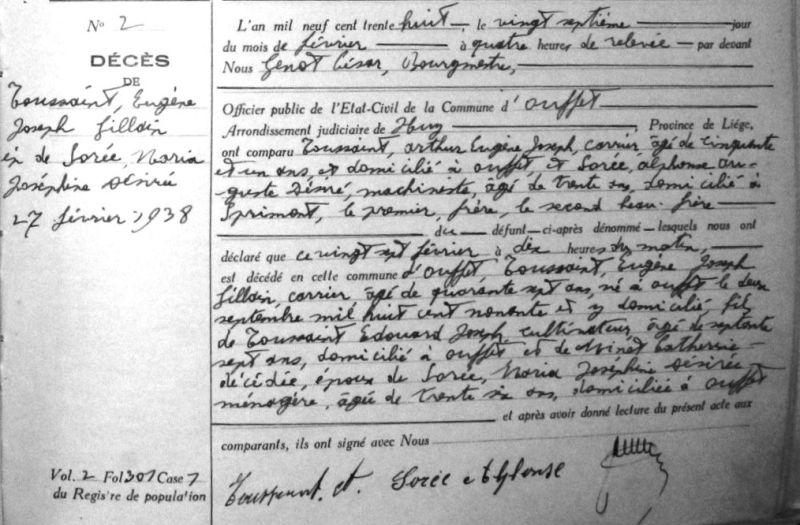 N° 2
DÉCÈS
DE
Toussaint, Eugène
Joseph Gillain
ép de Sorée, Maria
Joséphine Désirée
27 février 1938
Vol. 2 Fol 301 Case 7
du Registre de population
L'an mil neuf cent trente huit, le vingt septième jour
du mois de février à quatre heures de relevée par devant
Nous Genot César, Bourgmestre,
Officier public de l'Etat-Civil de la Commune d'Ouffet
Arrondissement judiciaire de Huy, Province de Liége,
ont comparu Toussaint, Arthur Eugène Joseph, carrier, âgé de cinquante
et un ans, et domicilié à Ouffet, et Sorée, Alphonse Au-
guste Désiré, machiniste, âgé de trente ans, domicilié à
Sprimont, le premier, frère, le second beau-frère
du défunt ci-après dénommé lesquels nous ont
déclaré que ce vingt sept février à dix heures du matin,
est décédé en cette commune d'Ouffet Toussaint, Eugène Joseph
Gillain, carrier, âgé de quarante sept ans, né à Ouffet le deux
septembre mil huit cent nonante et y domicilié, fils
de Toussaint Edouard Joseph, cultivateur, âgé de septante
sept ans, domicilié à Ouffet et de Ninét Catherine
décédée, époux de Sorée, Maria Joséphine Désirée,
ménagère, âgée de trente six ans, domiciliée à Ouffet
et après avoir donné lecture du présent acte aux
comparants, ils ont signé avec Nous
Toussaint. A. Sorée Alphonse